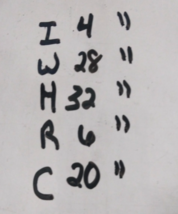 I 4 "
W 28 "
H 32 "
R 6 "
C 20 "